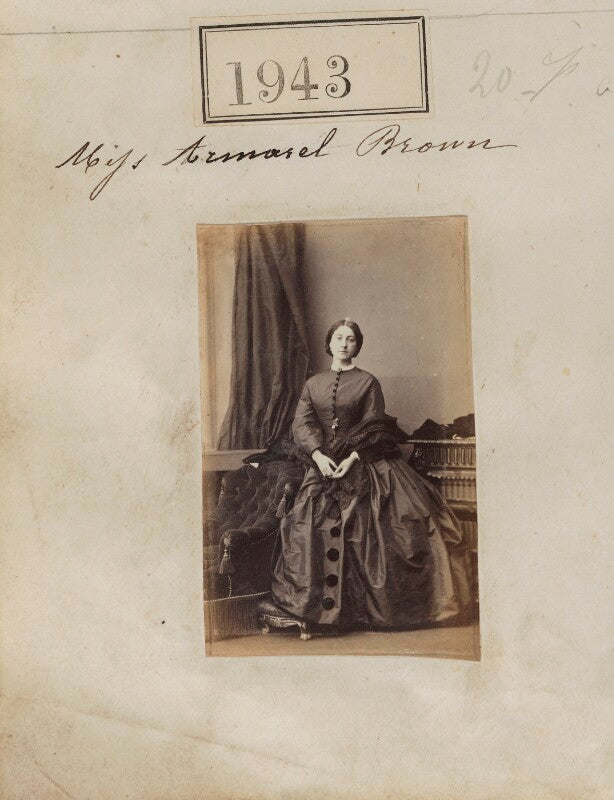 1943
20
Miss Armarel Brown